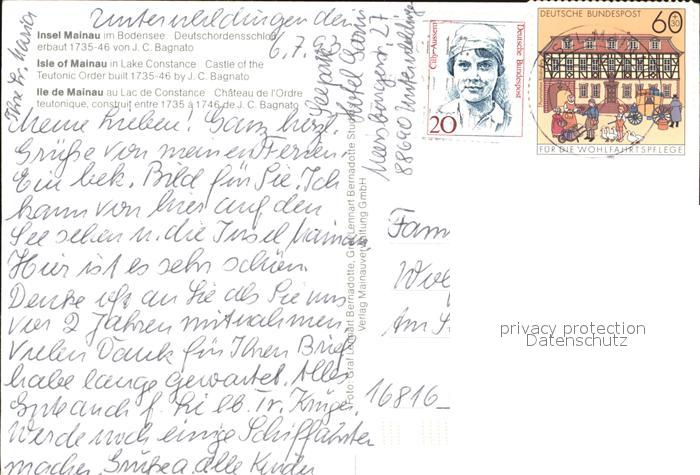 Unteruhldingen den
6.7.93
Insel Mainau im Bodensee Deutschordensschloß
erbaut 1735-46 von J. C. Bagnato
Isle of Mainau in Lake Constance Castle of the
Teutonic Order built 1735-46 by J. C. Bagnato
Ile de Mainau au Lac de Constance Château de l'Ordre
teutonique, construit entre 1735 à 1746 de J. C. Bagnato
Meine Lieben! Ganz herzl.
Grüße von meinen Ferien.
Ein bek. Bild für Sie. Ich
kann von hier auf den
See sehen u. die Insel Mainau
Hier ist es sehr schön.
Denke oft an Sie als Sie uns
vor 2 Jahren mitnahmen
Vielen Dank für Ihren Brief
habe lange gewartet. Alles
Gute auch f. Lb. Fr. Krüger.
Werde noch einige Schiffahrten
machen. Grüße a. alle Kinder
Ihre Fr. Maria
Seeparkhotel
Meersburgerstr. 27
88690 Unteruhldingen
Foto: Graf Lennart Bernadotte, Graf Lennart Bernadotte
Verlag Mainauverwaltung GmbH
Cilly Aussem
Deutsche Bundespost
20
DEUTSCHE BUNDESPOST
60
+30
FÜR DIE WOHLFAHRTSPFLEGE
Fam
Am
16816
privacy protection
Datenschutz